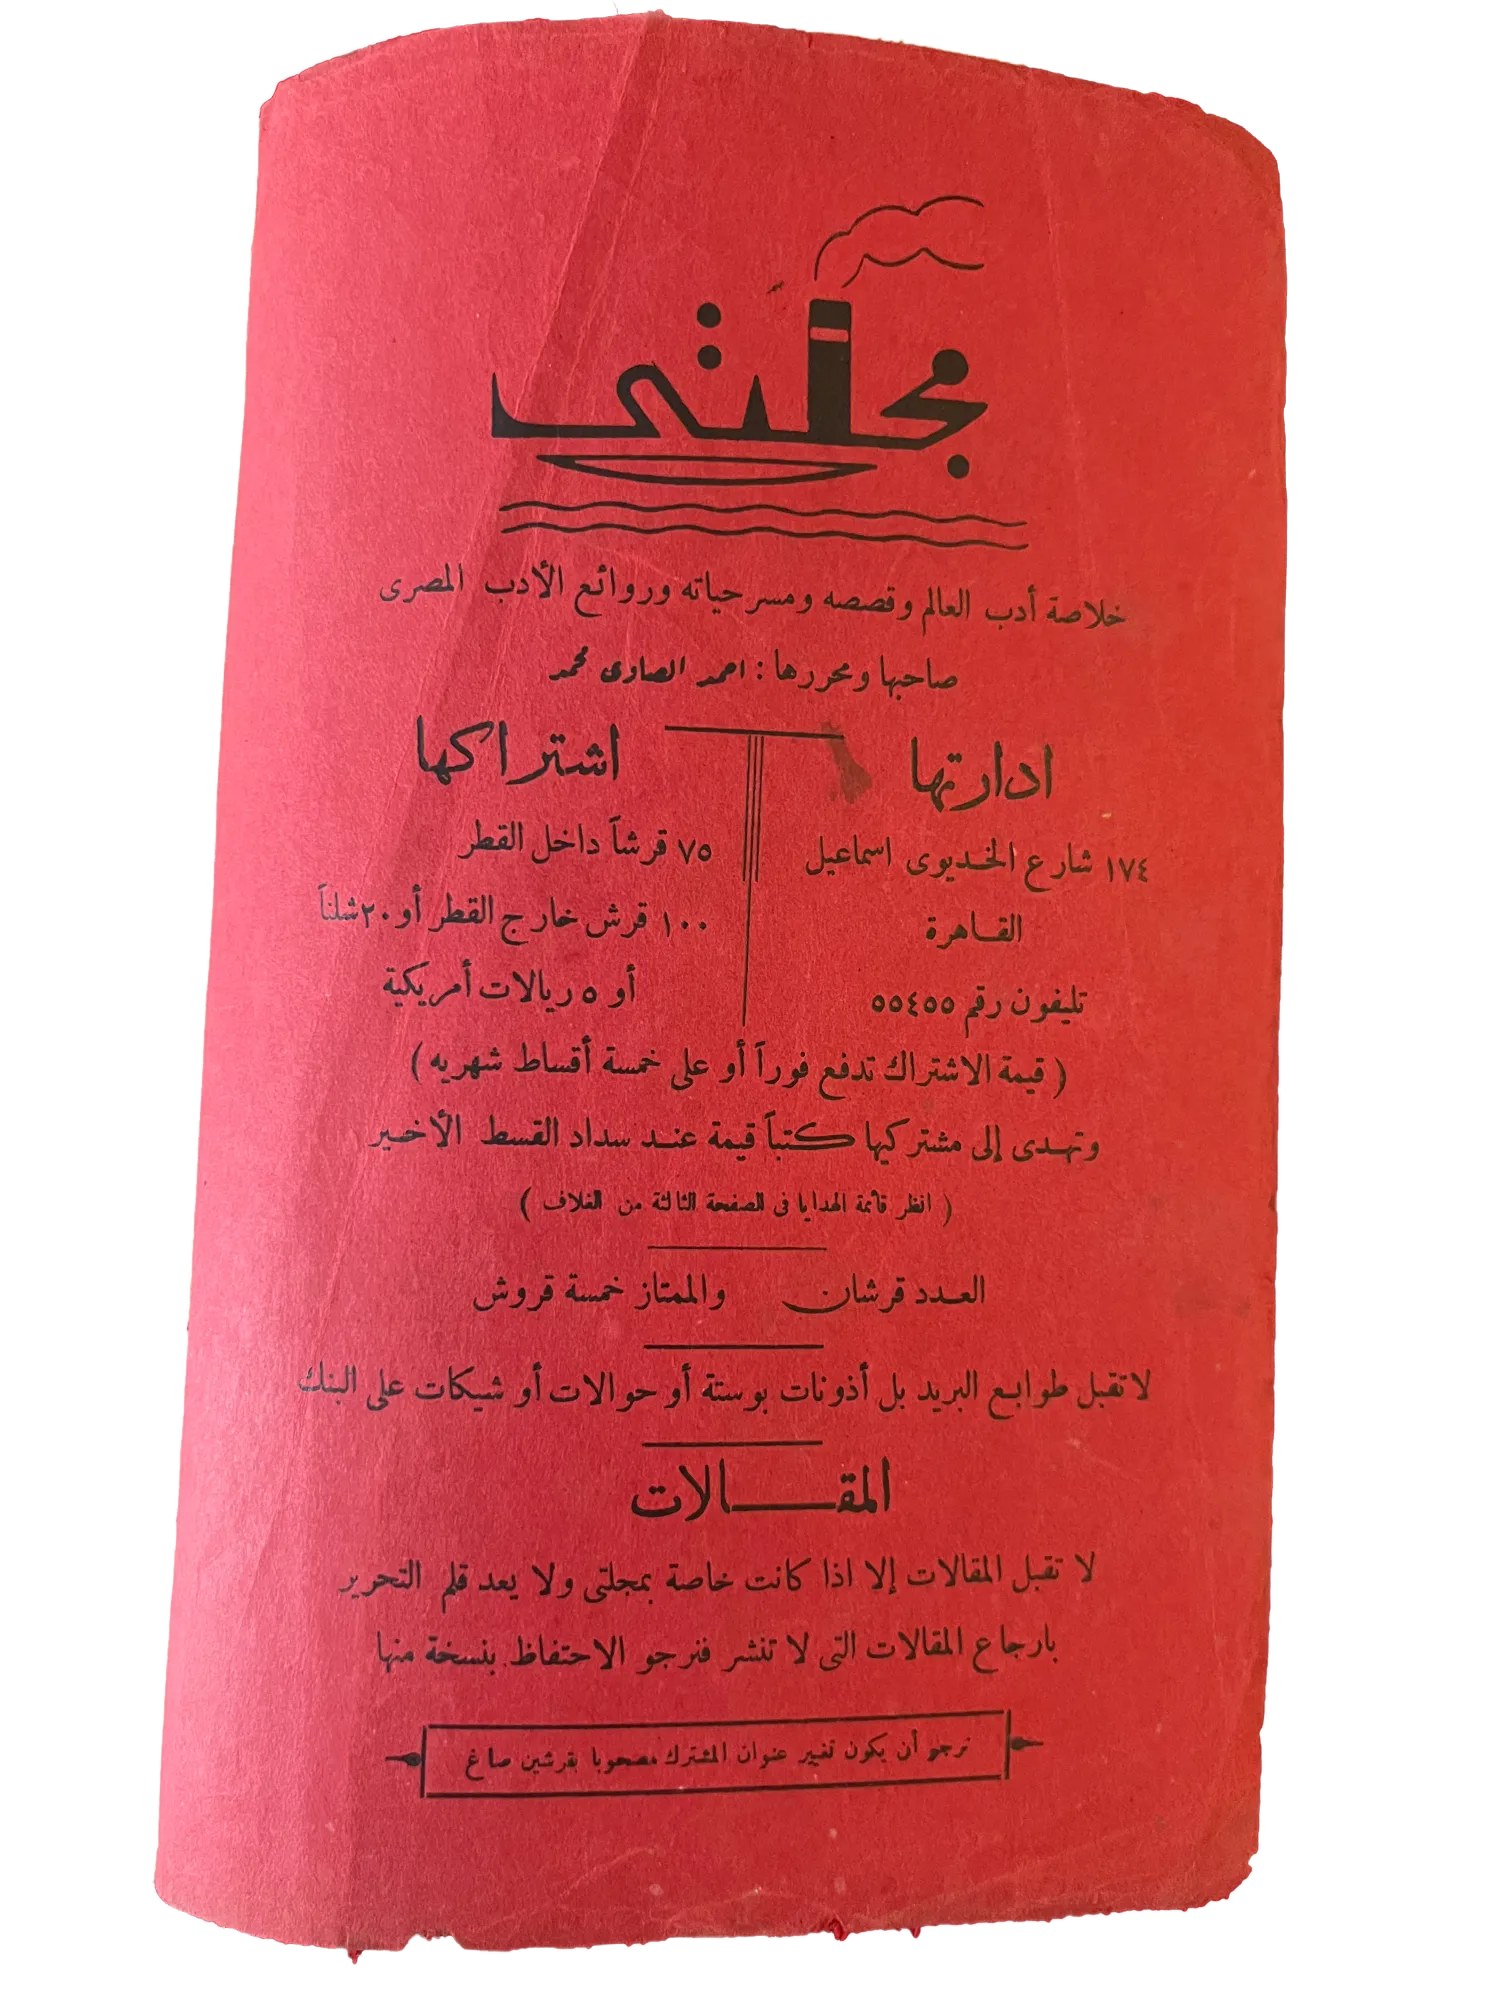 مجلتى
خلاصة أدب العالم وقصصه ومسرحياته وروائع الأدب المصرى
صاحبها ومحررها : احمد الصاوى محمد
ادارتها
١٧٤ شارع الخديوى اسماعيل
القاهرة
تليفون رقم ٥٥٤٥٥
اشتراكها
٧٥ قرشاً داخل القطر
١٠٠ قرش خارج القطر أو ٢٠ شلناً
أو ٥ ريالات أمريكية
( قيمة الاشتراك تدفع فوراً أو على خمسة أقساط شهريه )
وتهدى إلى مشتركيها كتباً قيمة عند سداد القسط الأخير
( انظر قائمة الهدايا فى الصفحة الثالثة من الغلاف )
العدد قرشان والممتاز خمسة قروش
لا تقبل طوابع البريد بل أذونات بوستة أو حوالات أو شيكات على البنك
المقالات
لا تقبل المقالات إلا اذا كانت خاصة بمجلتى ولا يعد قلم التحرير
بارجاع المقالات التى لا تنشر فنرجو الاحتفاظ بنسخة منها
نرجو أن يكون تغيير عنوان المشترك مصحوبا بقرشين صاغ